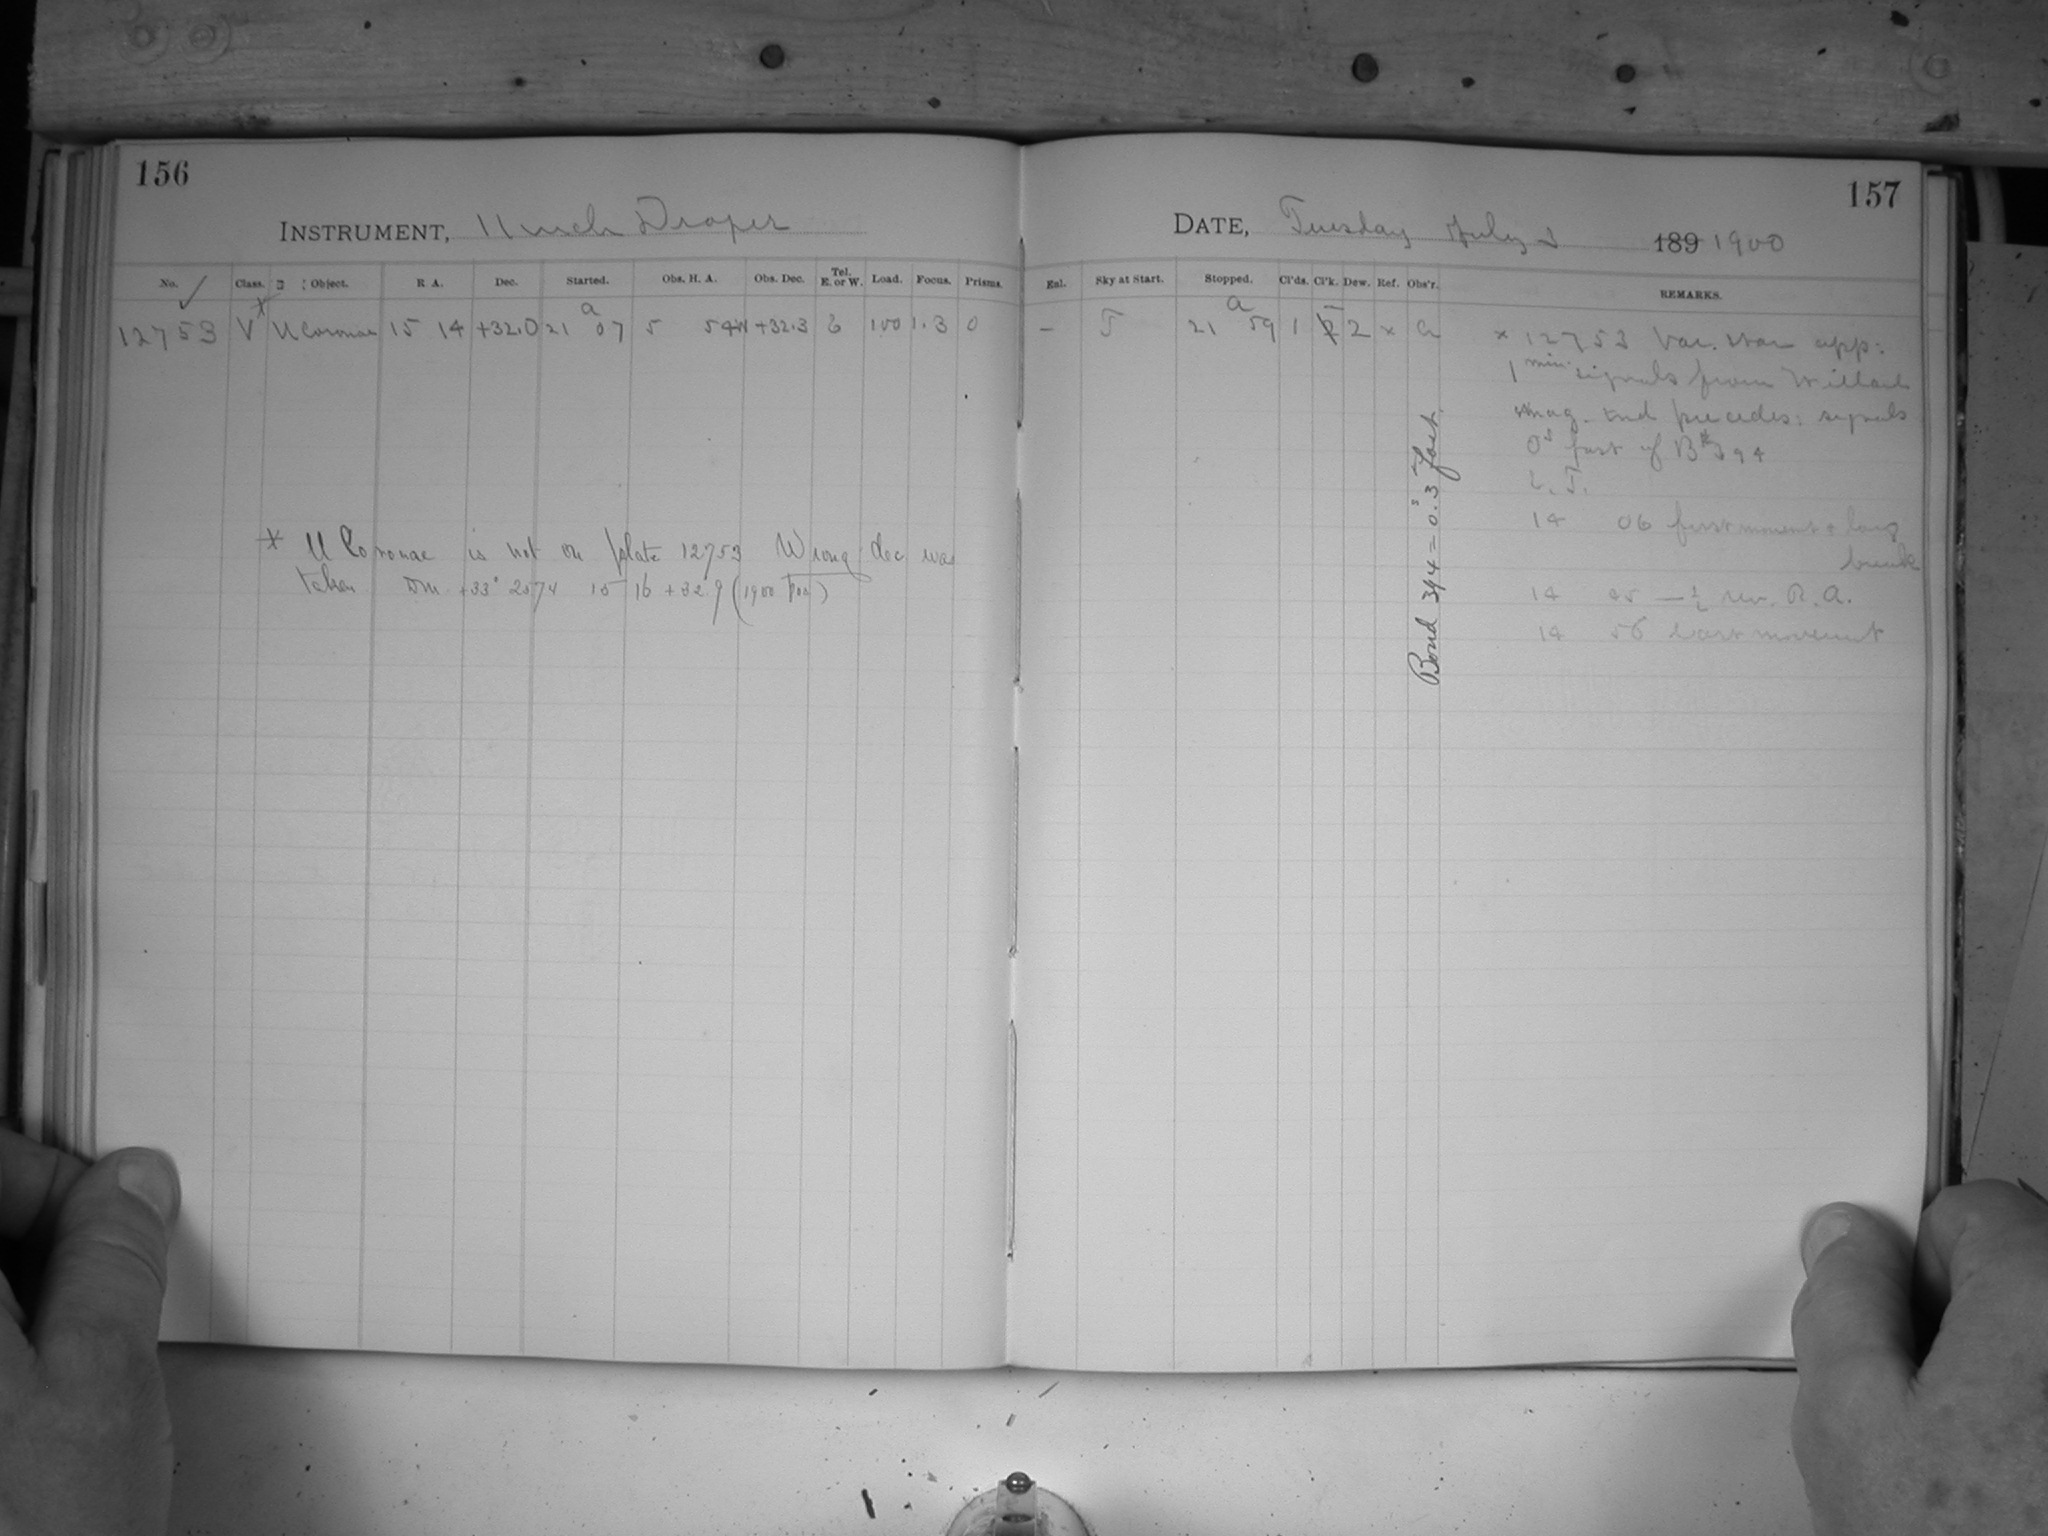 156
INSTRUMENT, 11 inch Draper
No. ✓ Class. Object. R A. Dec. Started. Obs. H. A. Obs. Dec. Tel. E. or W. Load. Focus. Prisms.
12753 V* U Coronae 15 14 +32.0 21 a 07 5 54W +32.3 100 1.3 0
* U Coronae is not on plate 12753 Wrong dec was
taken DM +33° 2574 15 16 +32.9 (1900 Pos)
157
DATE, Tuesday July 1900
Enl. Sky at Start. Stopped. Cl'ds. Cl'k. Dew. Ref. Obs'r. REMARKS.
– 21 a 59 1 2 2 x
x 12753 Var. star app:
1 min signals from Willard
mag. and precedes: signals
0s fast of B# 394
L. T.
14 06 first moment & long
break
14 45 – 1/2 rev. R. A.
14 56 last movement
Bond 394 = 0s.3 fast.